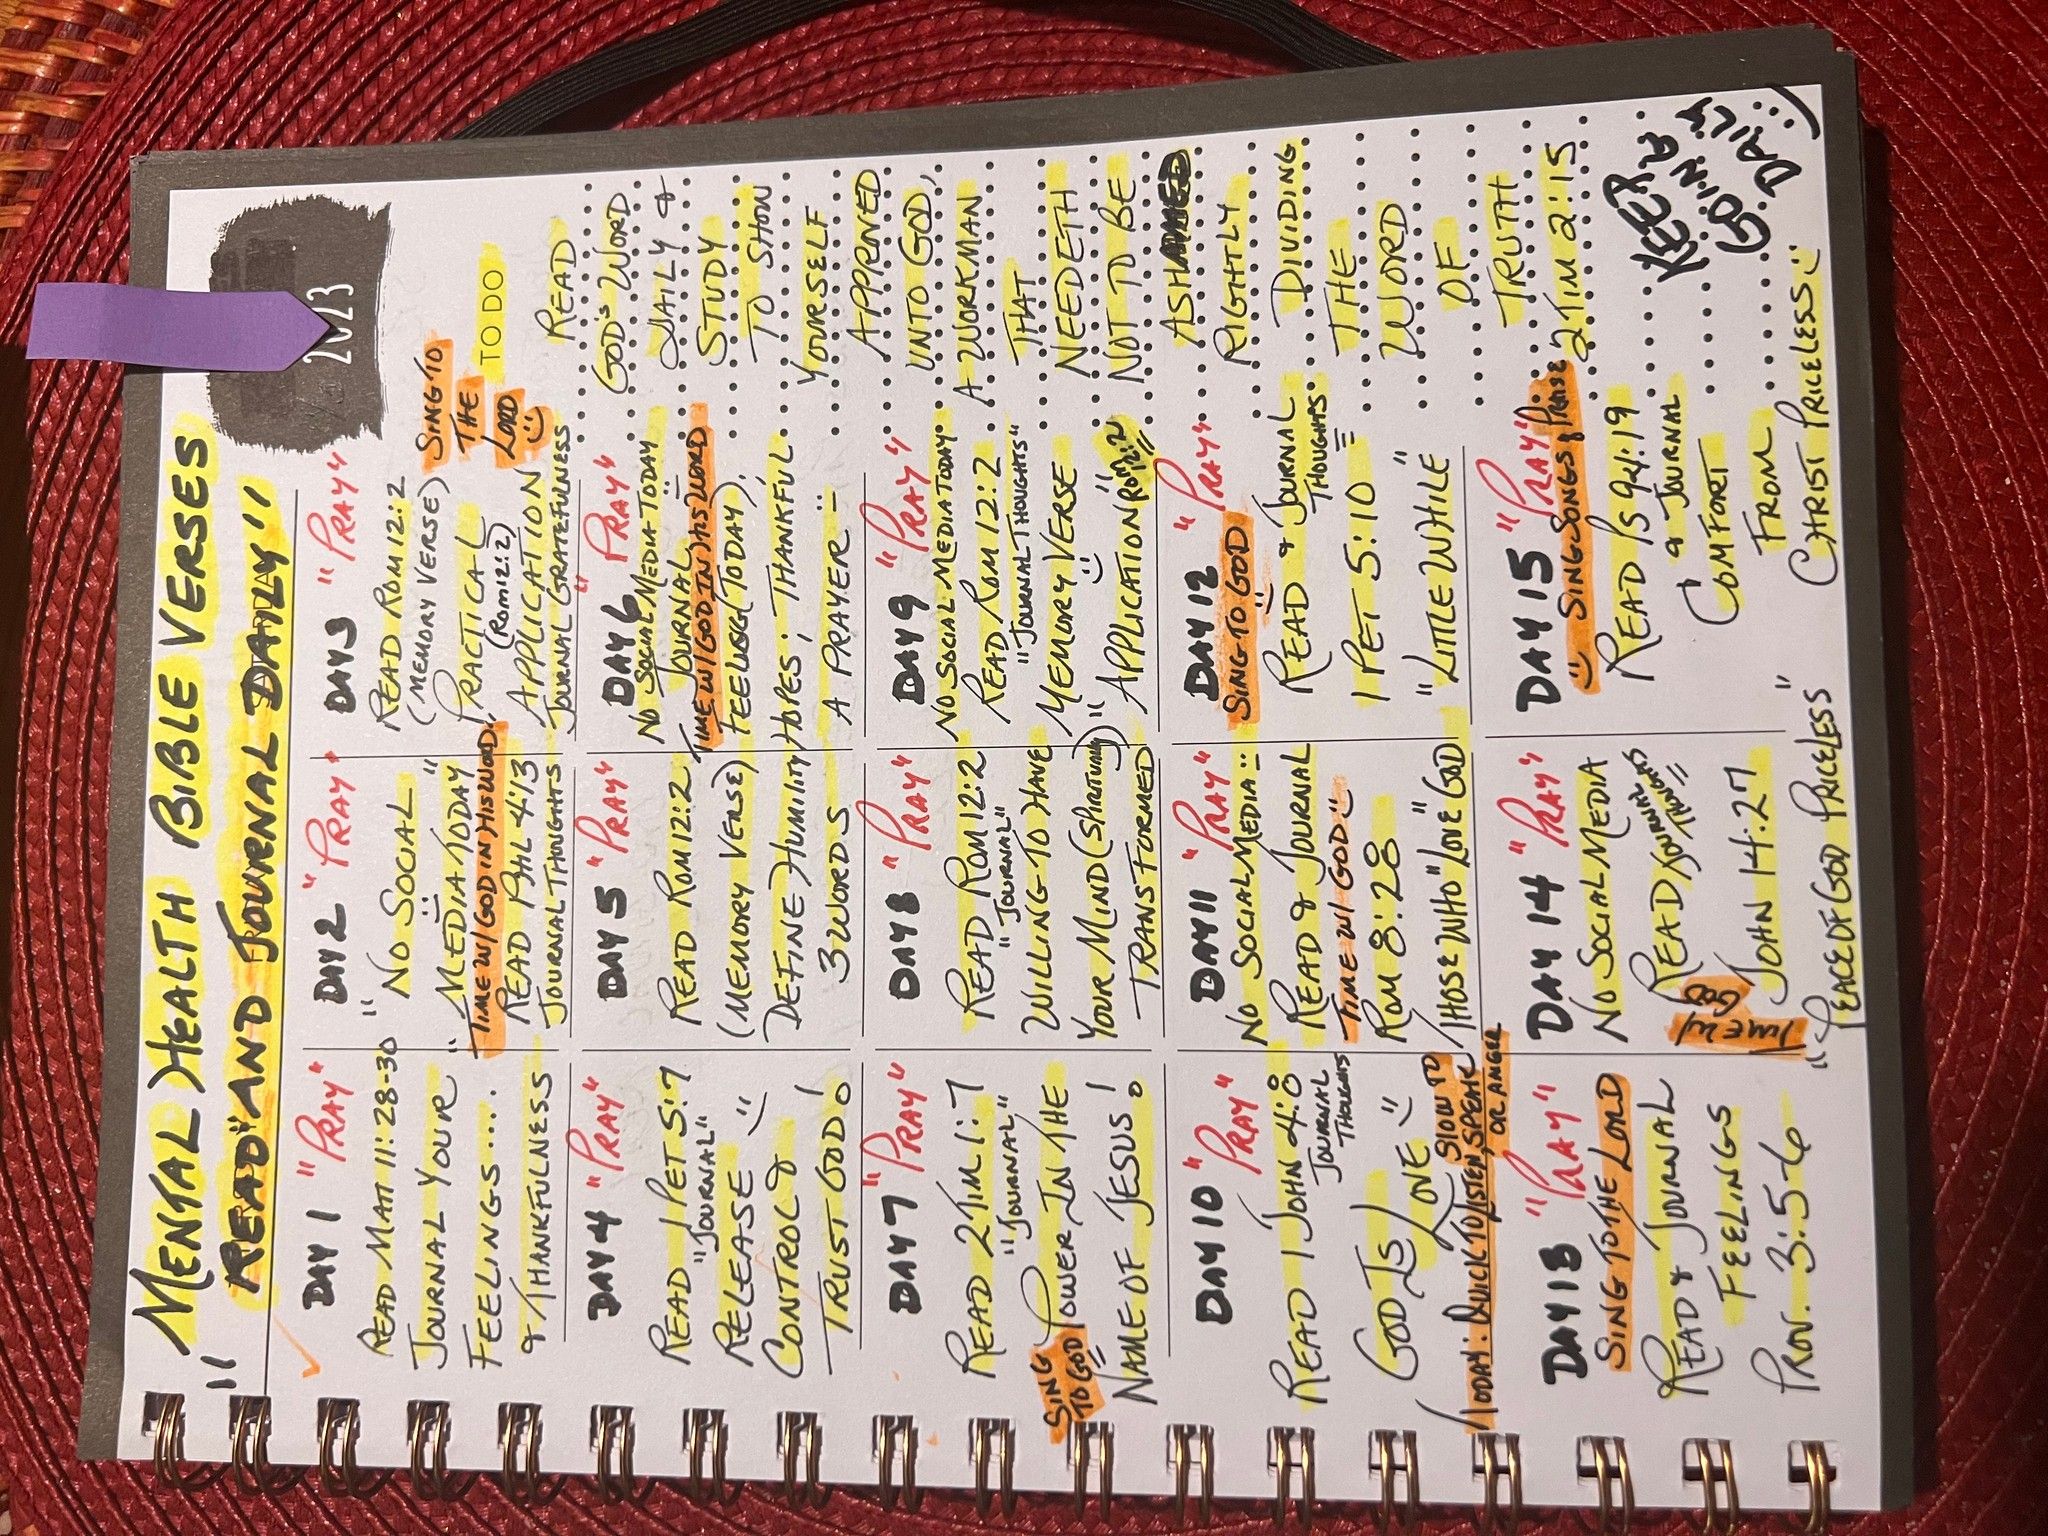 "MENTAL HEALTH BIBLE VERSES
READ" AND JOURNAL DAILY"
2023
DAY 1 "PRAY"
READ MATT 11:28-30
JOURNAL YOUR
FEELINGS....
& THANKFULNESS
DAY 2 "PRAY"
"NO SOCIAL
MEDIA TODAY"
"TIME W/ GOD IN HIS WORD"
READ PHIL 4:13
JOURNAL THOUGHTS
DAY 3 "PRAY"
READ ROM 12:2
(MEMORY VERSE)
PRACTICAL
(ROM 12:2)
APPLICATION
JOURNAL GRATEFULNESS
SING TO
THE
LORD
DAY 4 "PRAY"
READ 1 PET 5:7
"JOURNAL"
RELEASE
CONTROL &
TRUST GOD!
DAY 5 "PRAY"
READ ROM 12:2
(MEMORY VERSE)
DEFINE HUMILITY
3 WORDS
DAY 6 "PRAY"
NO SOCIAL MEDIA TODAY
JOURNAL
TIME W/ GOD IN HIS WORD
FEELINGS (TODAY),
HOPES, THANKFUL
A PRAYER
DAY 7 "PRAY"
READ 2 TIM 1:7
"JOURNAL"
SING
TO GOD
POWER IN THE
NAME OF JESUS!
DAY 8 "PRAY"
READ ROM 12:2
"JOURNAL"
WILLING TO HAVE
YOUR MIND (SPIRITUALLY)
TRANSFORMED
DAY 9 "PRAY"
NO SOCIAL MEDIA TODAY
READ ROM 12:2
"JOURNAL THOUGHTS"
MEMORY VERSE
APPLICATION" ROM 12:2
DAY 10 "PRAY"
READ 1 JOHN 4:8
JOURNAL
THOUGHTS
GOD IS LOVE
TODAY: QUICK TO LISTEN, SLOW TO SPEAK
OR ANGER
DAY 11 "PRAY"
NO SOCIAL MEDIA
READ & JOURNAL
TIME W/ GOD
ROM 8:28
THOSE WHO "LOVE" GOD
DAY 12 "PRAY"
SING TO GOD
READ & JOURNAL
THOUGHTS
1 PET 5:10
"LITTLE WHILE"
DAY 13 "PRAY"
SING TO THE LORD
READ & JOURNAL
FEELINGS
PROV. 3:5-6
DAY 14 "PRAY"
NO SOCIAL MEDIA
READ/JOURNAL
THOUGHTS
JOHN 14:27
"PEACE OF GOD PRICELESS"
DAY 15 "PRAY"
SING SONGS & PRAISE
READ PS 94:19
& JOURNAL
COMFORT
FROM
CHRIST PRICELESS
TO DO
READ
GOD'S WORD
DAILY &
STUDY
TO SHOW
YOURSELF
APPROVED
UNTO GOD,
A WORKMAN
THAT
NEEDETH
NOT TO BE
ASHAMED
RIGHTLY
DIVIDING
THE
WORD
OF
TRUTH
2 TIM 2:15
KEEP
GOING
DAILY